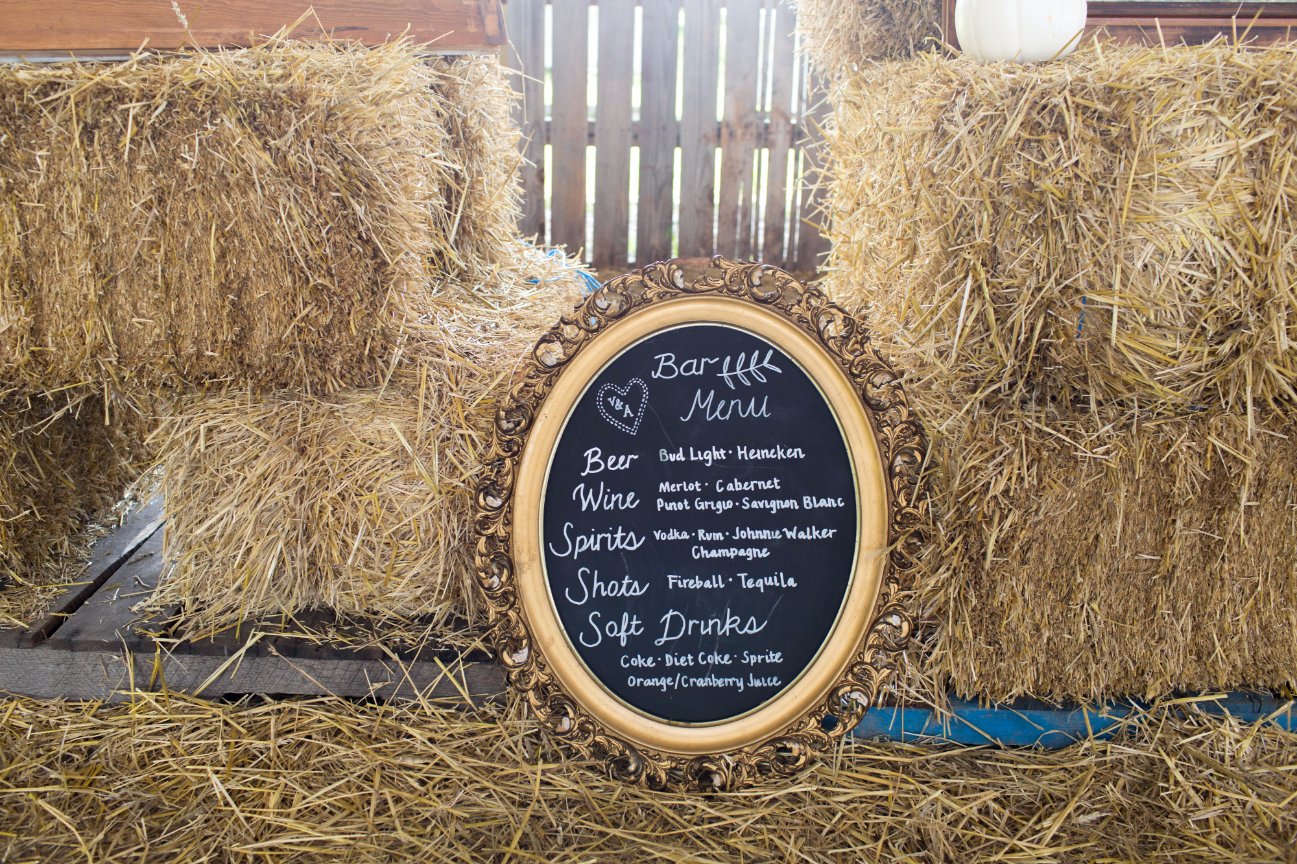 Bar
Menu
V&A
Beer Bud Light · Heineken
Wine Merlot · Cabernet
Pinot Grigio · Savignon Blanc
Spirits Vodka · Rum · Johnnie Walker
Champagne
Shots Fireball · Tequila
Soft Drinks
Coke · Diet Coke · Sprite
Orange/Cranberry Juice